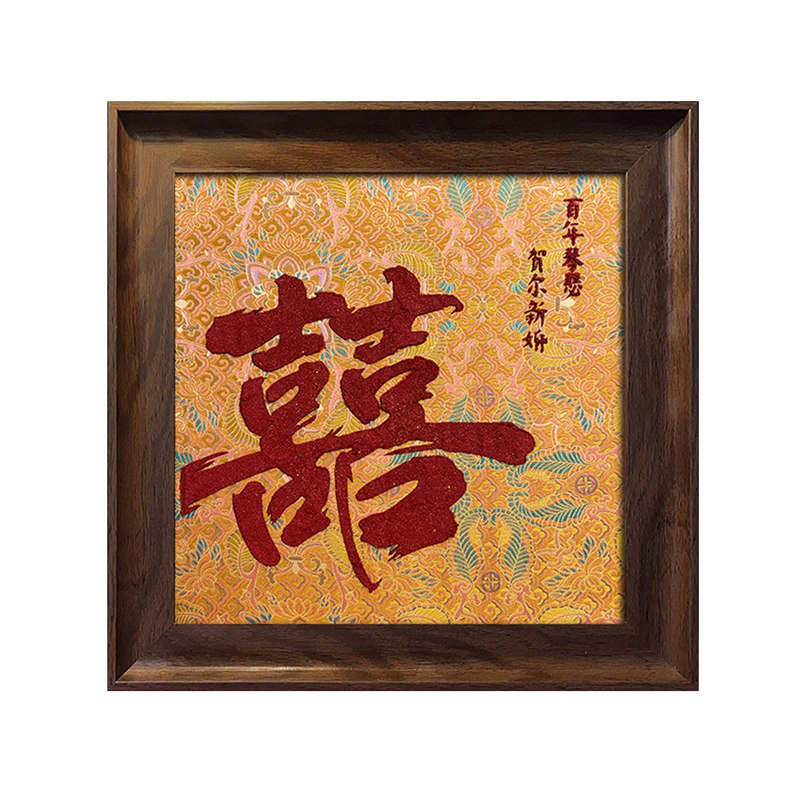 囍
百年琴戀
贺尔新婚